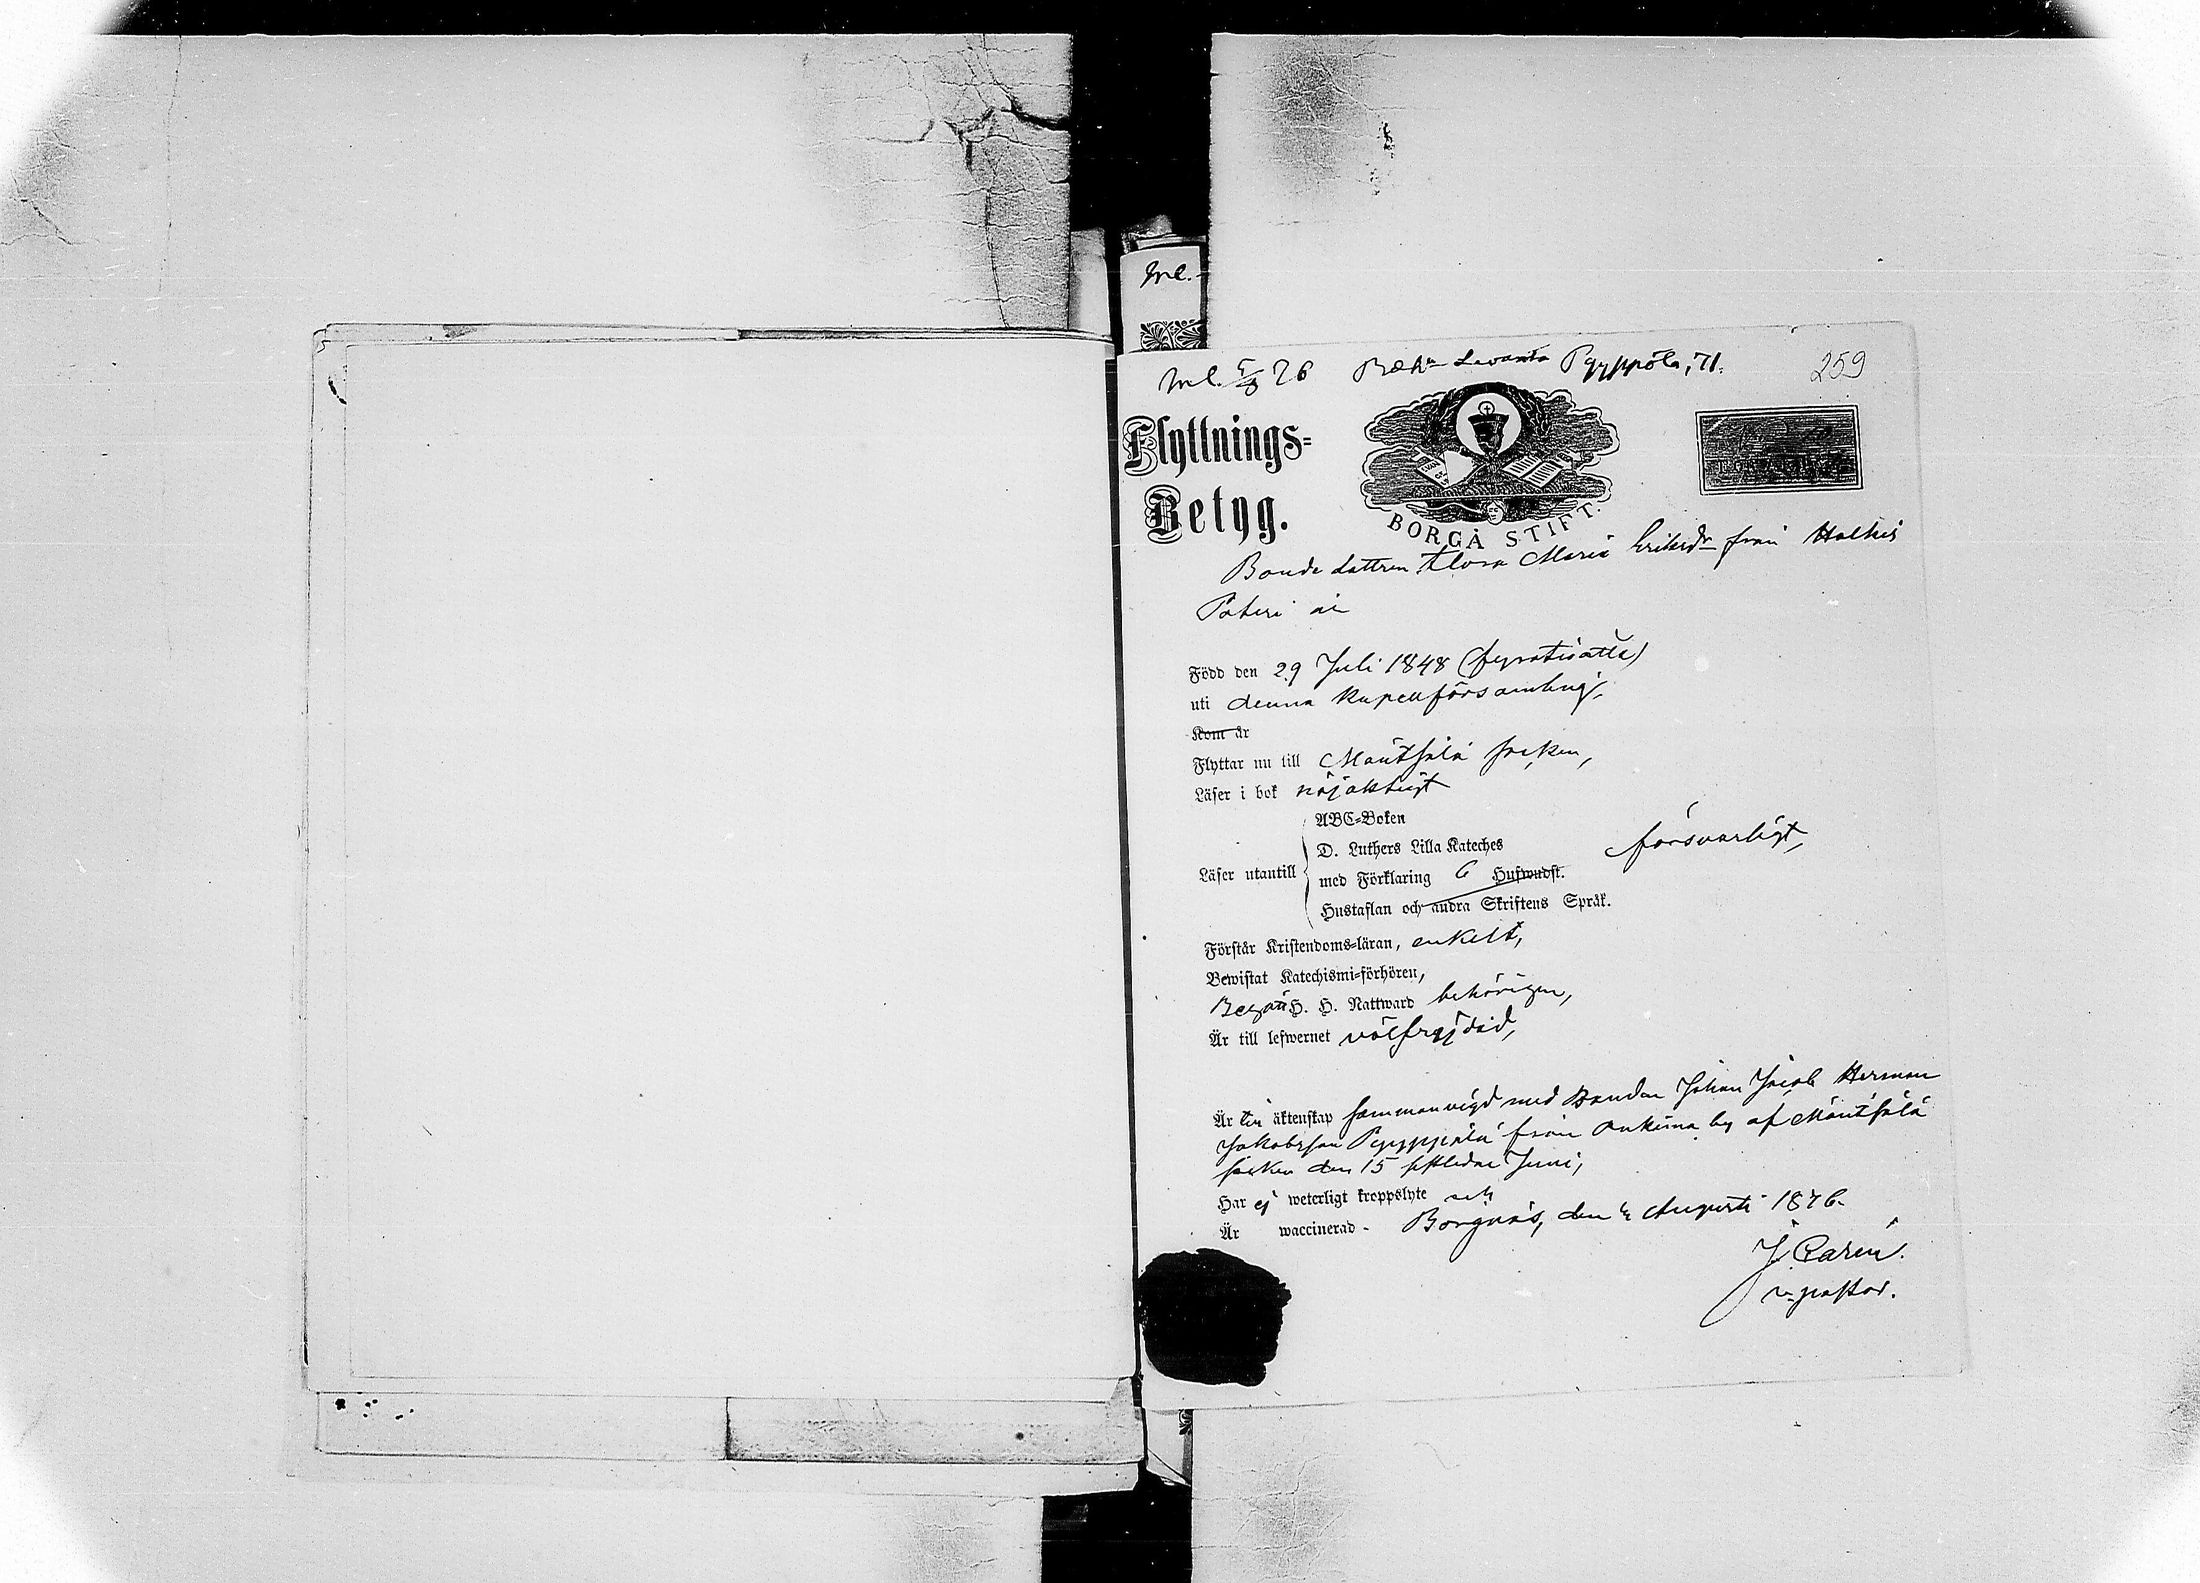 Inl.
Inl. 5/8 76 Levanto Pyyppölä, 71.
259
Flyttnings-
Betyg.
BORGÅ STIFT.
Bonde dottren Flora Maria Eriksdr från Halkis
är
Född den 29 Juli 1848 (fyratioåtta)
uti denna Kapellförsamling,
Kom år
Flyttar nu till Mäntsälä socken,
Läser i bok nöjaktigt
ABC-Boken
D. Luthers Lilla Kateches
försvarligt,
Läser utantill med Förklaring 6 Hufwudst.
Hustaflan och andra Skriftens Språk.
Förstår Kristendoms-läran, enkelt,
Bewistat Katechismi-förhören,
Begått H. H. Nattward behörigen,
Är till lefwernet välfrejdad,
Är till äktenskap sammanvigd med Bonden Johan Jacob Herman
Jakobsson Pyyppölä från Onkimaa by af Mäntsälä
socken den 15 sistledne Juni,
Har ej weterligt kroppslyte och
Är waccinerad - Borgnäs, den 4 Augusti 1876.
J. Carén.
v. pastor.